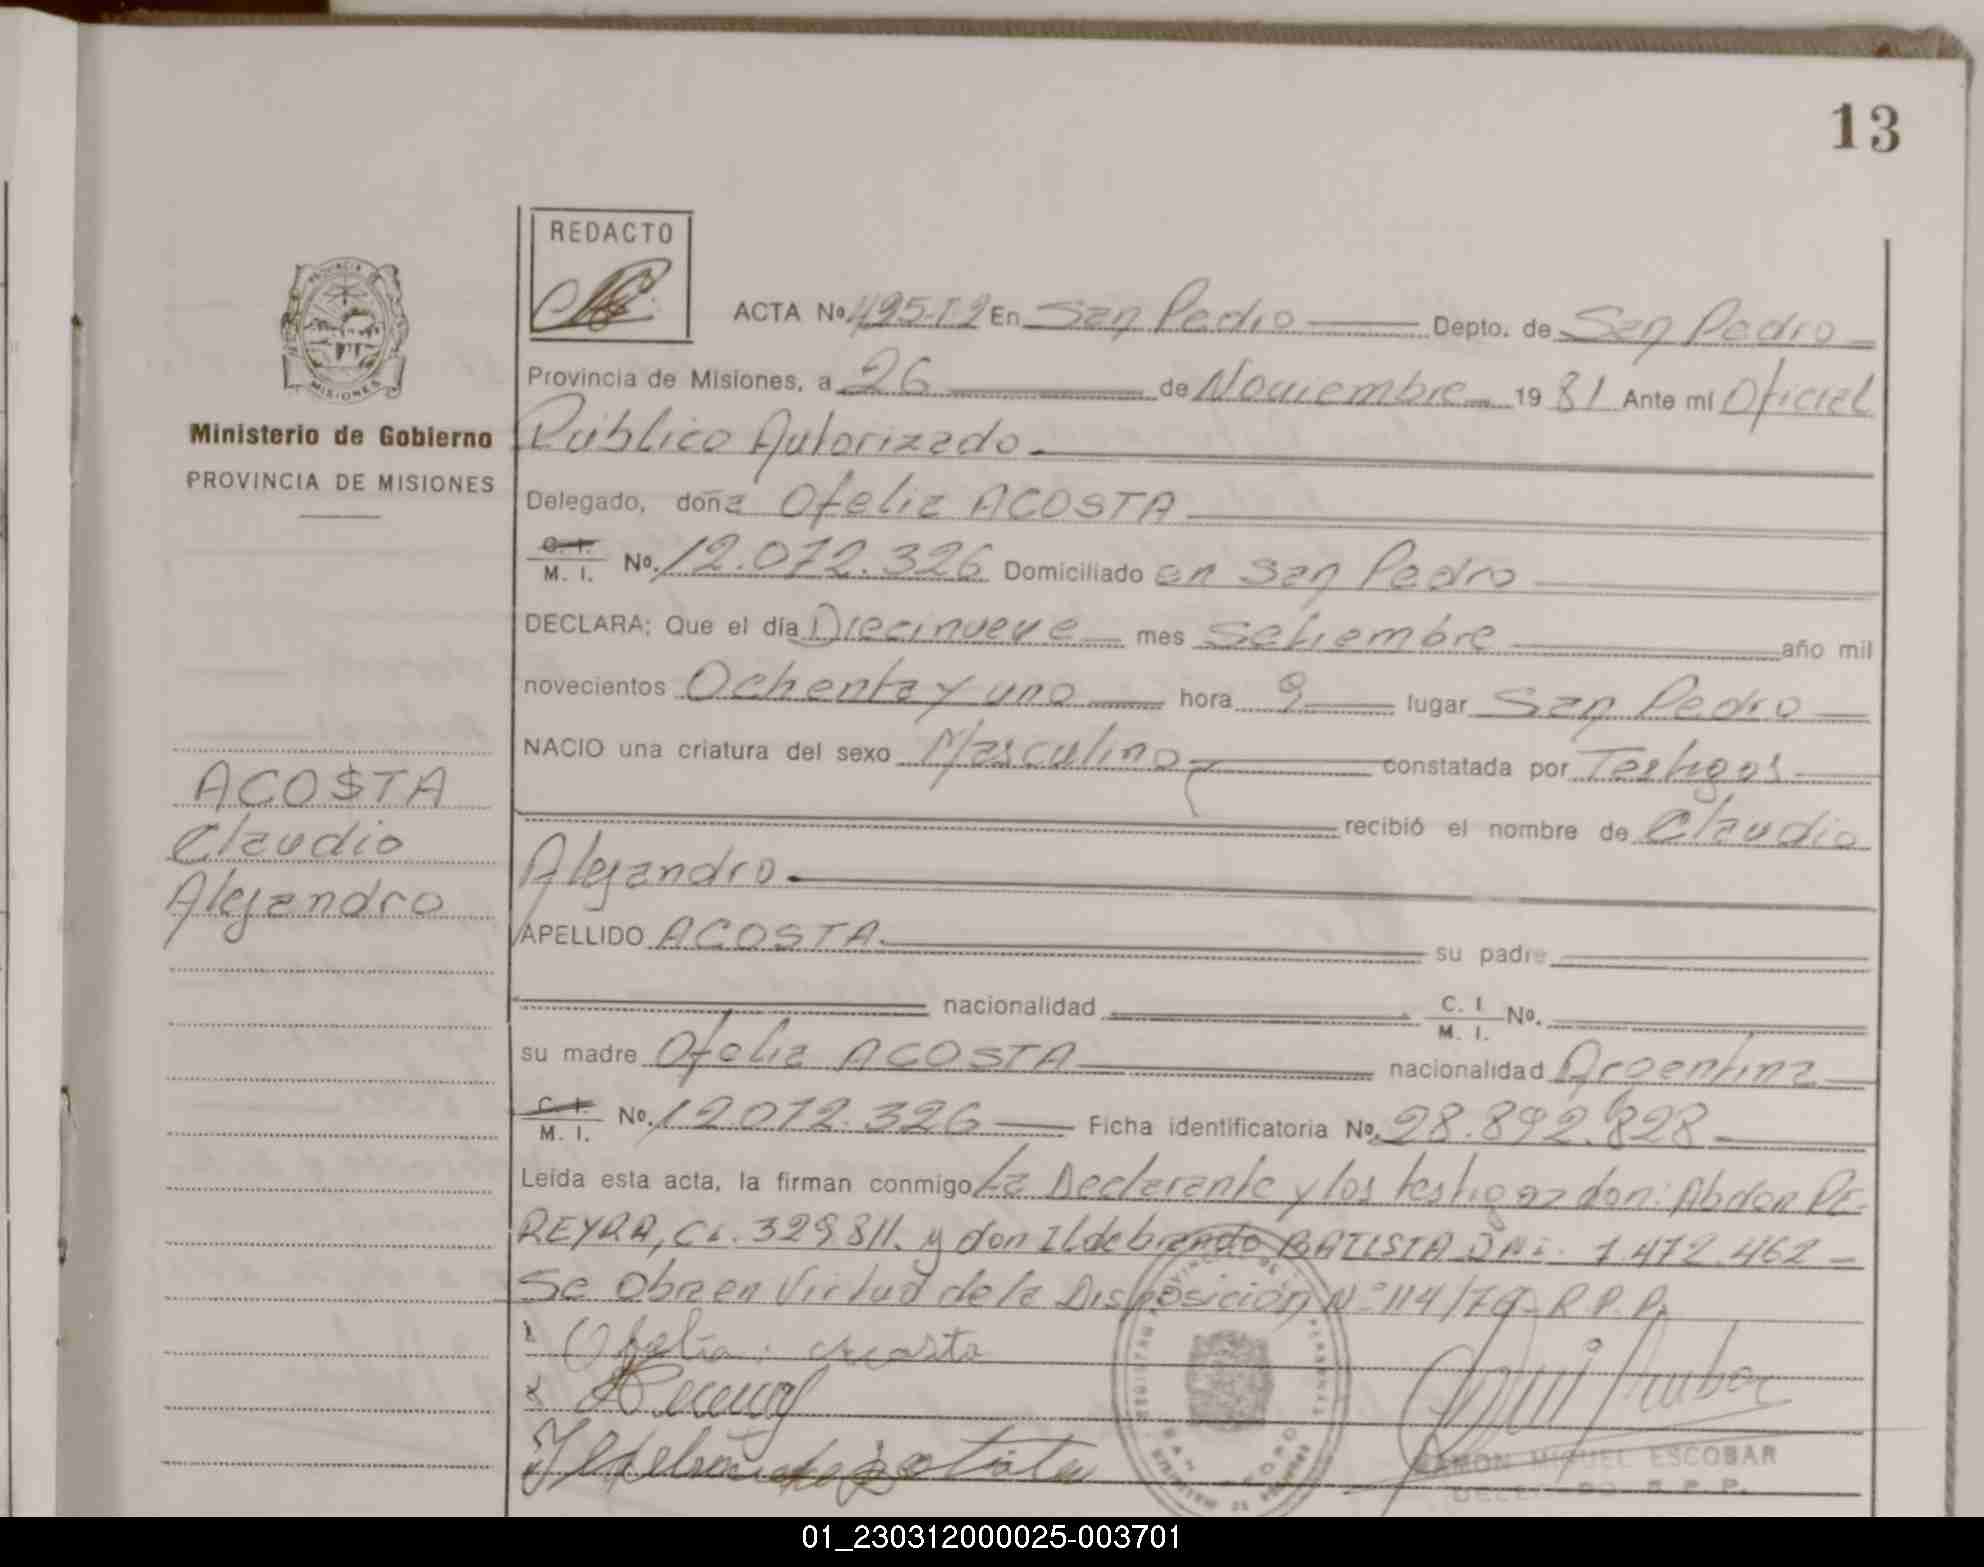 13
REDACTO
PROVINCIA DE
MISIONES
Ministerio de Gobierno
PROVINCIA DE MISIONES
ACOSTA
Claudio
Alejandro
ACTA Nº 495-T2 En San Pedro Depto. de San Pedro
Provincia de Misiones, a 26 de Noviembre 1981 Ante mí Oficial
Público Autorizado.
Delegado, doña Ofelia ACOSTA
C. I. / M. I. Nº. 12.072.326 Domiciliado en San Pedro
DECLARA: Que el día Diecinueve mes Setiembre año mil
novecientos Ochenta y uno hora 9 lugar San Pedro
NACIO una criatura del sexo Masculino constatada por Testigos
recibió el nombre de Claudio
Alejandro.
APELLIDO ACOSTA. su padre
nacionalidad C. I. / M. I. Nº.
su madre Ofelia ACOSTA nacionalidad Argentina
C. I. / M. I. Nº. 12072.326 Ficha identificatoria Nº. 28.892.828
Leída esta acta, la firman conmigo La Declarante y los testigoz don: Abdon PE-
REYRA, Ci. 329811. y don Ildebrando BATISTA DNi. 7.472.462
Se Obra en Virtud de la Disposición Nº 114/79-R.P.P.
1 Ofelia
RAMON MIGUEL ESCOBAR
DELEGADO R. P. P.
01_230312000025-003701